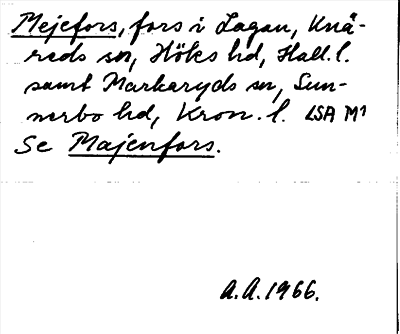 Mejefors, fors i Lagan, Knä-
reds sn, Höks hd, Hall. l.
samt Markaryds sn, Sun-
nerbo hd, Kron. l. LSA M1
Se Majenfors.
A.A. 1966.